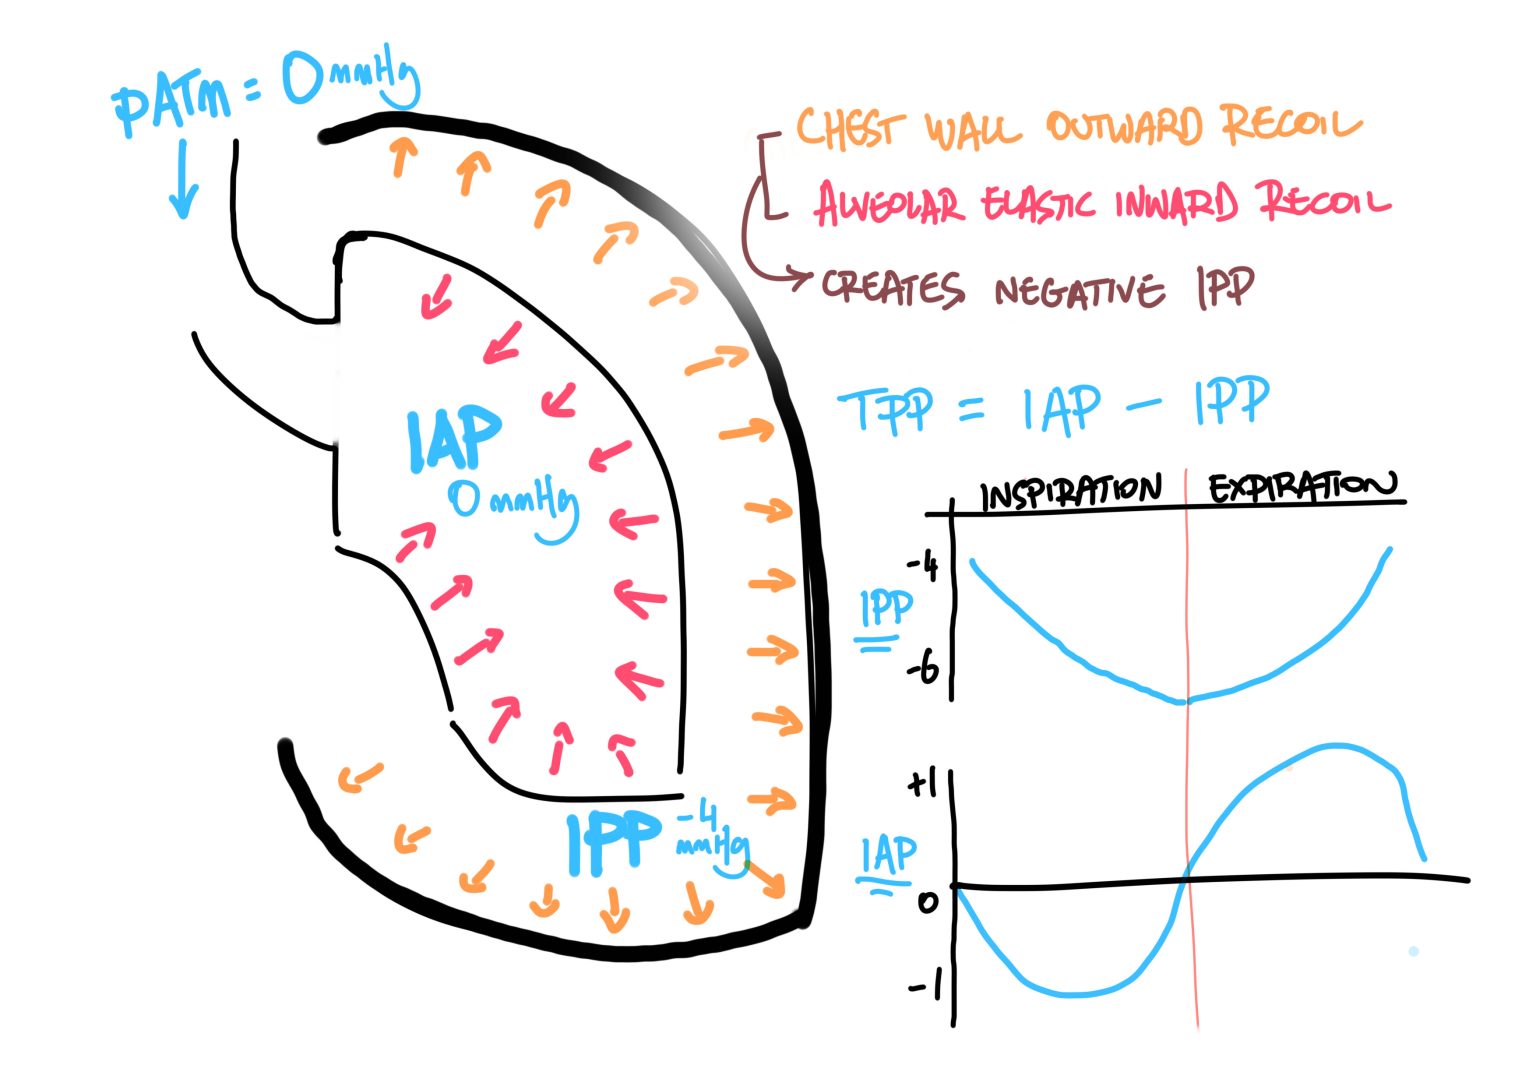 PATM = 0 mmHg
CHEST WALL OUTWARD RECOIL
ALVEOLAR ELASTIC INWARD RECOIL
CREATES NEGATIVE IPP
TPP = IAP - IPP
IAP
0 mmHg
IPP -4 mmHg
INSPIRATION EXPIRATION
-4
IPP
-6
+1
IAP
0
-1